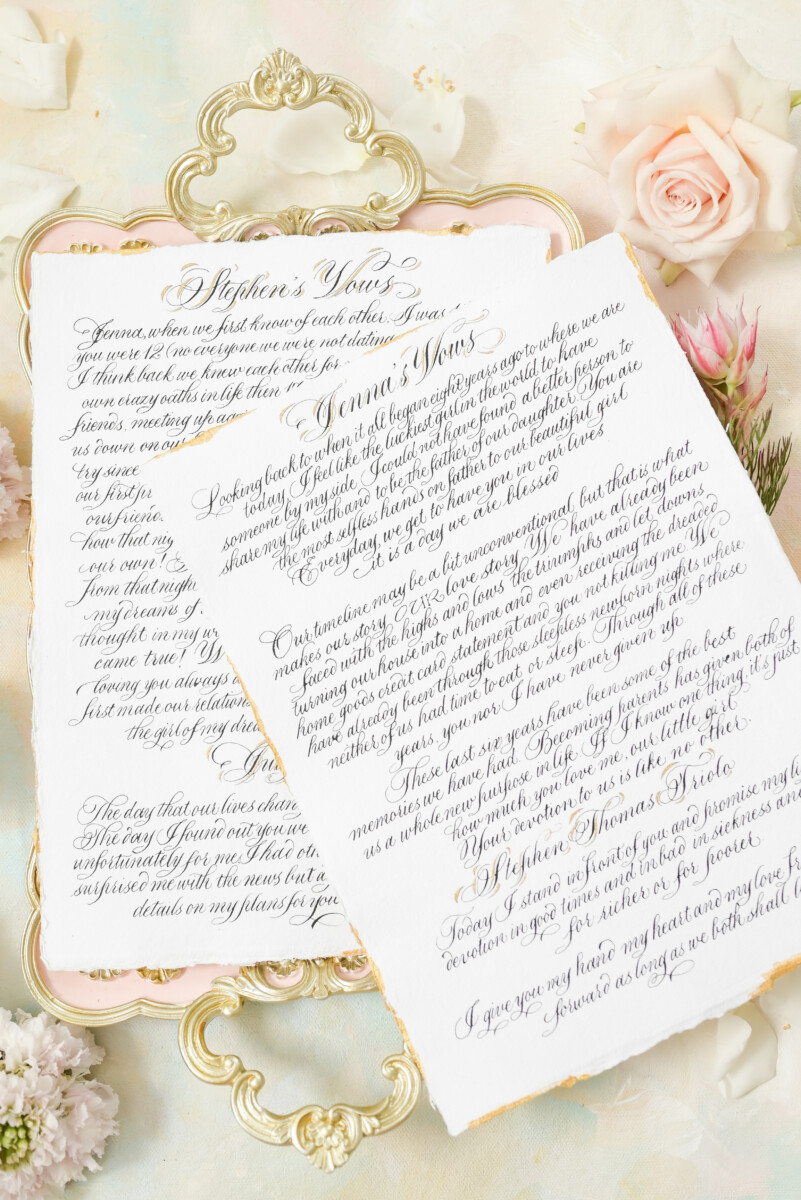 Stephen's Vows
Jenna, when we first know of each other. I was
you were 12 (no everyone we were not dating
I think back we knew each other for
own crazy paths in life then
friends, meeting up aga
us down on our
try since
our first
our friend
how that nig
our own!
from that night
my dreams of
thought in my
came true! W
loving you always
first made our relation
the girl of my drea
The day that our lives chan
The day I found out you we
unfortunately for me, I had oth
surprised me with the news but a
details on my plans for you
Jenna's Vows
Looking back to when it all began eight years ago to where we are
today, I feel like the luckiest girl in the world to have
someone by my side. I could not have found a better person to
share my life with and to be the father of our daughter. You are
the most selfless hands on father to our beautiful girl
Everyday, we get to have you in our lives
it is a day we are blessed
Our timeline may be a bit unconventional, but that is what
makes our story OUR love story. We have already been
faced with the highs and lows, the triumphs and let downs
turning our house into a home and even receiving the dreaded
home goods credit card statement and you not killing me. We
have already been through those sleepless newborn nights where
neither of us had time to eat or sleep. Through all of these
years, you nor I have never given up
These last six years have been some of the best
memories we have had. Becoming parents has given both of
us a whole new purpose in life. If I know one thing, it's just
how much you love me, our little girl
Your devotion to us is like no other.
Stephen Thomas Triolo
Today I stand in front of you and promise my li
devotion in good times and in bad in sickness and
for richer or for poorer
I give you my hand my heart and my love fr
forward as long as we both shall l